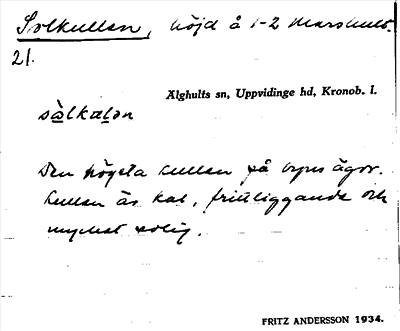 Solkullen, höjd å 1-2 Marshult.
21.
Älghults sn, Uppvidinge hd, Kronob. l.
Den högsta kullen på byns ägor.
Kullen är kal, friliggande och
mycket solig.
FRITZ ANDERSSON 1934.